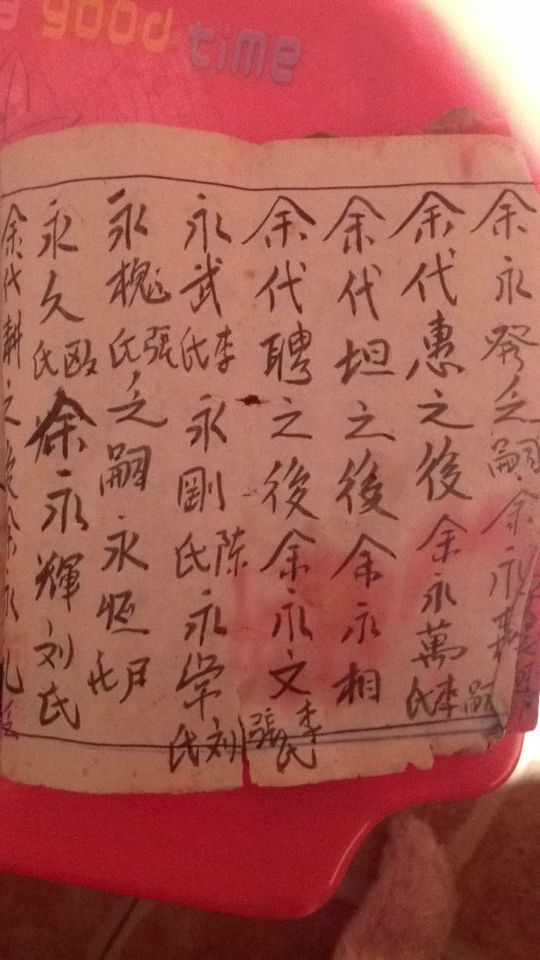 a good time
余永發之嗣 余永
余代惠之後 余永萬 李氏 嗣
余代坦之後 余永相
余代聘之後 余永文 李氏 張
永武 李氏 永剛 陈氏 永学 刘氏
永槐 張氏 之嗣 永恒
永久 氏 余永輝 刘氏
余代耕之後 余永